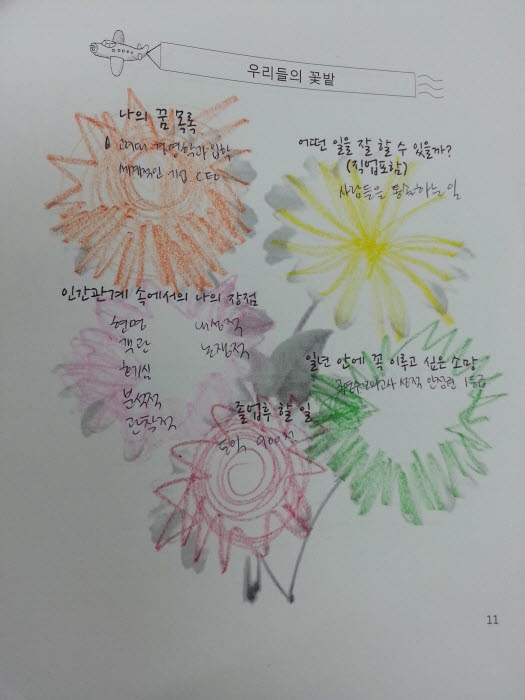 우리들의 꽃밭
나의 꿈 목록
고려대 경영학과 입학
세계적인 기업 CEO
어떤 일을 잘 할 수 있을까?
(직업포함)
사람들을 통솔하는 일
인간관계 속에서의 나의 장점
현명
내성적
객관
논쟁적
호기심
분석적
관찰적
일년 안에 꼭 이루고 싶은 소망
성적 1등급
졸업후 할 일
토익 900점
11